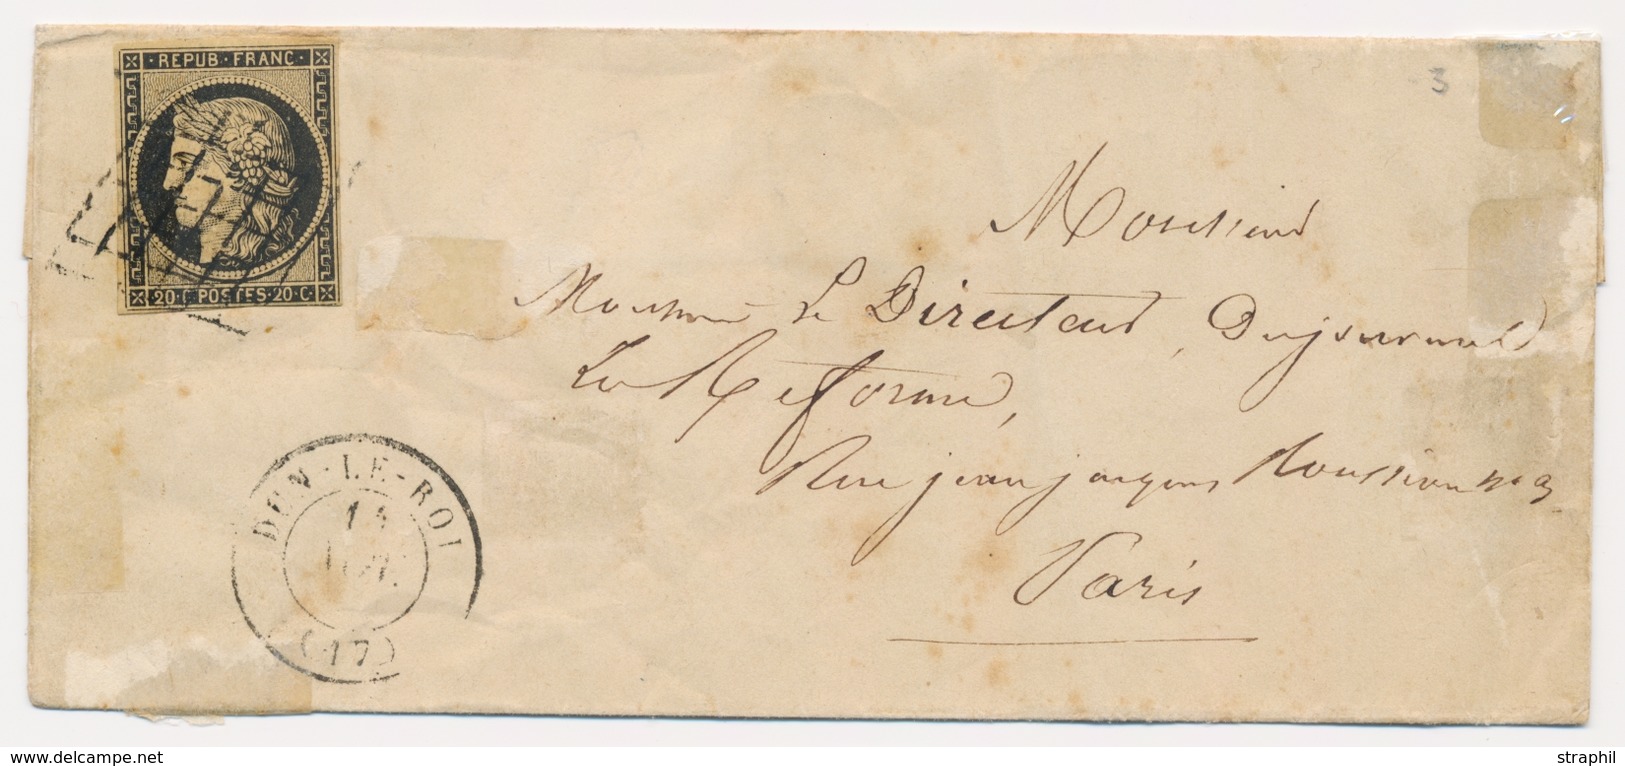 REPUB·FRANC·
20·C·POSTES·20·C·
3
Monsieur
Monsieur Le Directeur, Du journal
La Reforme,
Rue jean jacques Rousseau No 3
Paris
DUN-LE-ROI
(17)
straphil
www.delcampe.net